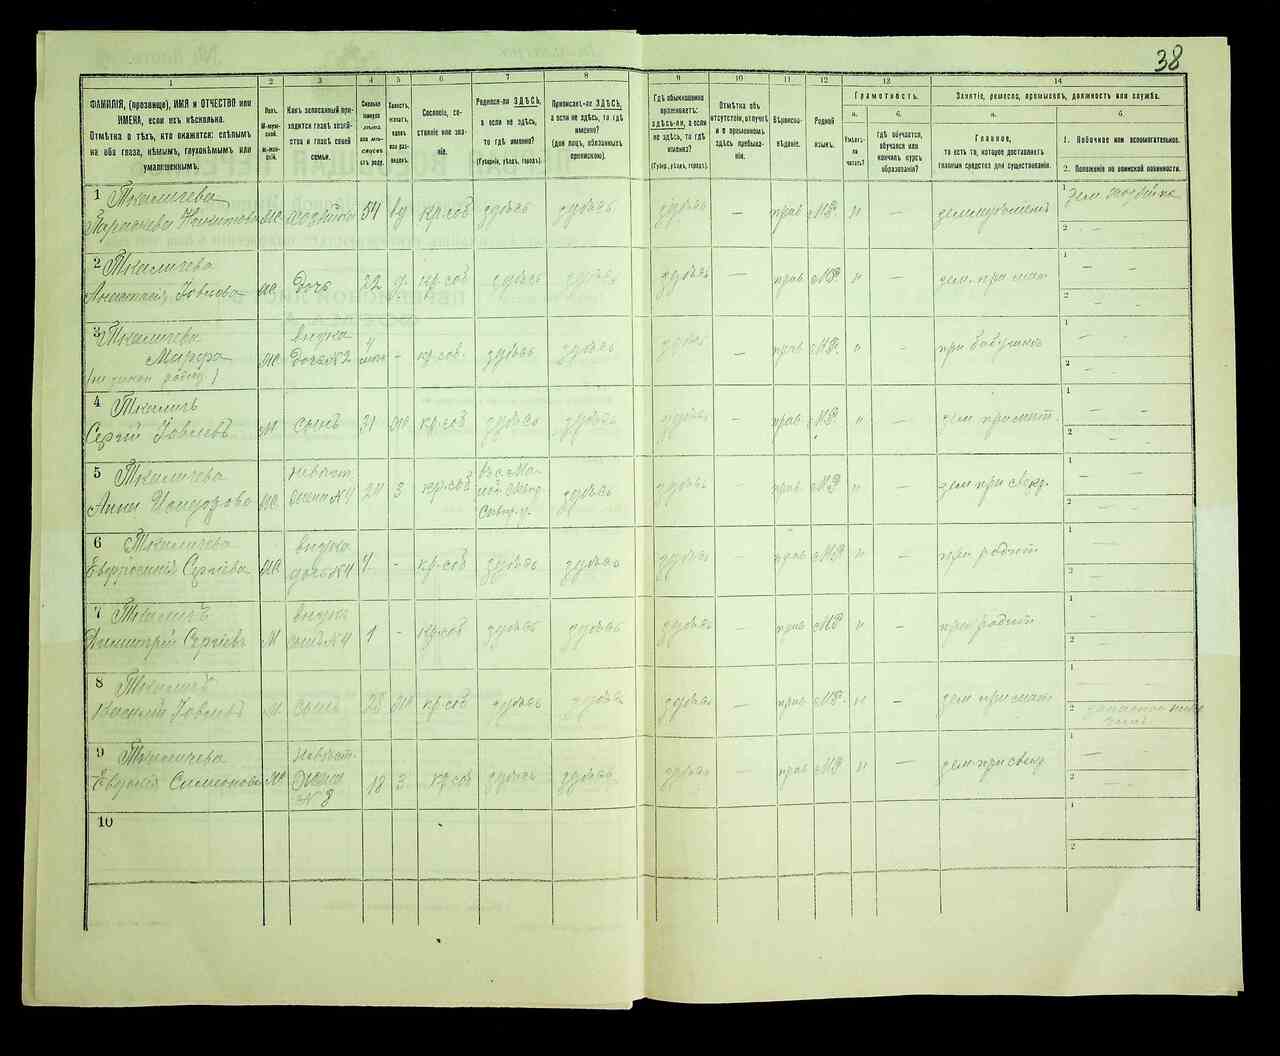 38
1
2
3
4
5
6
7
8
9
10
11
12
13
14
ФАМИЛІЯ, (прозвище), ИМЯ и ОТЧЕСТВО или
ИМЕНА, если ихъ нѣсколько.
Отмѣтка о тѣхъ, кто окажется: слѣпымъ
на оба глаза, нѣмымъ, глухонѣмымъ или
умалишеннымъ.
Полъ.
М-муж-
ской.
Ж-жен-
скій.
Какъ записанный при-
ходится главѣ хозяй-
ства и главѣ своей
семьи.
Сколько
минуло
лѣтъ
или мѣ-
сяцевъ
отъ роду.
Холостъ,
женатъ,
вдовъ
или раз-
веденъ.
Сословіе, со-
стояніе или зва-
ніе.
Родился-ли ЗДѢСЬ,
а если не здѣсь,
то гдѣ именно?
(Губернія, уѣздъ, городъ).
Приписанъ-ли ЗДѢСЬ,
а если не здѣсь, то гдѣ
именно?
(Для лицъ, обязанныхъ
припискою).
Гдѣ обыкновенно
проживаетъ:
здѣсь-ли, а если
не здѣсь, то гдѣ
именно?
(Губернія, уѣздъ, городъ).
Отмѣтка объ
отсутствіи, отлучкѣ
и о временномъ
здѣсь пребыва-
ніи.
Вѣроиспо-
вѣданіе.
Родной
языкъ.
Грамотность.
а.
Умѣетъ-
ли
читать?
б.
Гдѣ обучается,
обучался или
кончилъ курсъ
образованія?
Занятіе, ремесло, промыселъ, должность или служба.
а.
Главное,
то есть то, которое доставляетъ
главныя средства для существованія.
б.
1. Побочное или вспомогательное.
2. Положеніе по воинской повинности.
1 Ткаличева
Параскева Никитова ж хозяйка 54 вд кр.соб здѣсь здѣсь здѣсь — прав МР. н — 1 зем. хозяйка
2 — —
2 Ткаличева
Анастасія Іовлева ж дочь 22 д. кр.соб здѣсь здѣсь здѣсь — прав МР. н — 1 — —
2 — —
3 Ткаличева внука
Марфа ж дочь №2 4 — кр.соб. здѣсь здѣсь здѣсь — прав МР. н — при бабушкѣ 1
2 — —
4 Ткаличъ
Сергій Іовлевъ м сынъ 31 ж кр.соб здѣсь здѣсь здѣсь — прав МР. н — 1 — —
2 — —
5 Ткаличева невѣст.
Анна ж жена №4 3 кр.соб здѣсь здѣсь — прав МР н — зем. при свекр. 1
2 — —
6 Ткаличева внука
Евфросинія Сергіева ж дочь №4 4 — кр.соб здѣсь здѣсь здѣсь — прав МР н — при родит 1
2 — —
7 Ткаличъ внукъ
Димитрій Сергіевъ м сынъ №4 1 — кр.соб здѣсь здѣсь здѣсь — прав МР н — при родит 1
2 — —
8 Ткаличъ
Іовлевъ м сынъ 28 ж кр.соб здѣсь здѣсь здѣсь — прав МР. н — 1
2
9 Ткаличева невѣст.
Евдокія Симеонова ж жена 18 3 кр.соб здѣсь здѣсь здѣсь — прав МР н — зем. при свекр 1 —
№ 8
2 — —
10
1
2